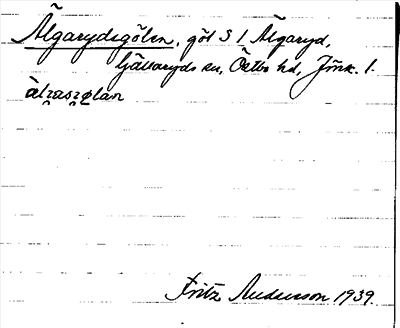 Älgarydsgölen, göl S I Älgaryd,
Gällaryds sn, Östbo hd, Jönk. l.
Fritz Andersson 1939.